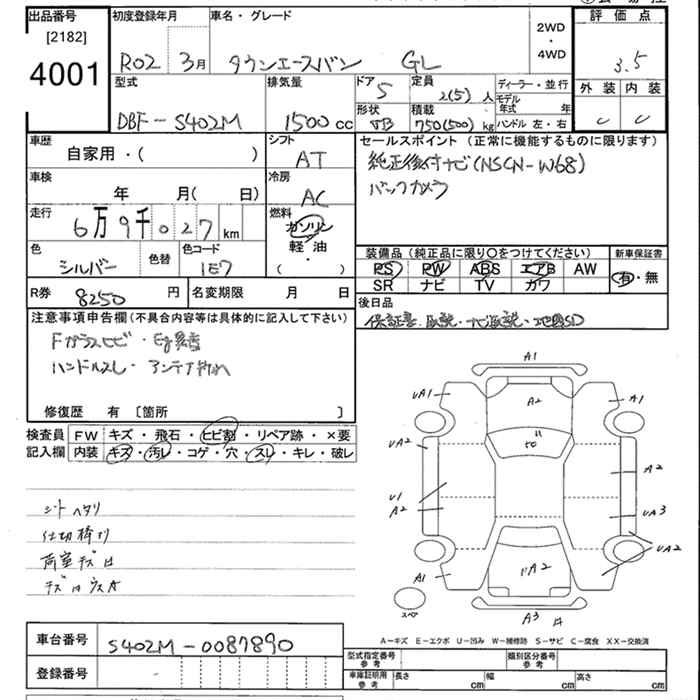 出品番号 初度登録年月 車名・グレード 評価点
[2182]
4001
R02 3月 タウンエースバン GL 2WD・4WD 3.5
型式 排気量 ドア 定員 ディーラー・並行 外装 内装
DBF-S402M 1500cc 5 2(5)人 モデル年式 年
形状 積載 ハンドル 左・右
VB 750(500)kg C C
車歴 シフト セールスポイント (正常に機能するものに限ります)
自家用・( ) AT 純正後付ナビ(NSCN-W68)
車検 冷房 バックカメラ
年 月( 日) AC
走行 燃料
6万9千027km ガソリン
軽油
( )
色 色替 色コード
シルバー 1E7
装備品 (純正品に限り○をつけてください) 新車保証書
PS PW ABS エアB AW 有・無
SR ナビ TV カワ
R券 8250円 名変期限 月 日
後日品
保証書、取説、ナビ取説、地図SD
注意事項申告欄(不具合内容等は具体的に記入して下さい)
Fガラスヒビ・Eg異音
ハンドルスレ・アンテナ折れ
修復歴 有 〔箇所 〕
検査員記入欄 FW キズ・飛石・ヒビ割・リペア跡・×要
内装 キズ・汚レ・コゲ・穴・スレ・キレ・破レ
シートヘタリ
荷室キズ
A1
UA1
A2
A1
UA2
A2
U1
A2
UA3
UA2
A1
A2
スペア
A3
A-キズ E-エクボ U-凹み W-補修跡 S-サビ C-腐食 XX-交換済
車台番号 S402M-0087890
登録番号 -
型式指定番号 参考 類別区分番号 参考
車庫証明用 参考 長さ cm 幅 cm 高さ cm